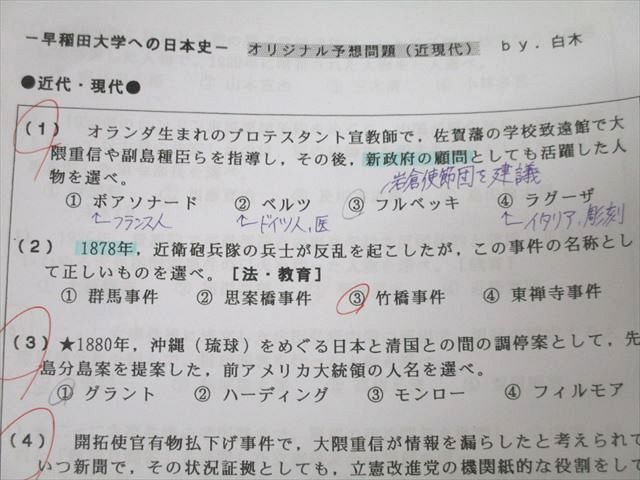 －早稲田大学への日本史－ オリジナル予想問題(近現代) by.白木
●近代・現代●
(1) オランダ生まれのプロテスタント宣教師で，佐賀藩の学校致遠館で大
隈重信や副島種臣らを指導し，その後，新政府の顧問としても活躍した人
物を選べ。
岩倉使節団を建議
① ボアソナード ② ベルツ ③ フルベッキ ④ ラグーザ
←フランス人 ←ドイツ人,医 ←イタリア,彫刻
(2) 1878年，近衛砲兵隊の兵士が反乱を起こしたが，この事件の名称とし
て正しいものを選べ。[法・教育]
① 群馬事件 ② 思案橋事件 ③ 竹橋事件 ④ 東禅寺事件
(3) ★1880年，沖縄（琉球）をめぐる日本と清国との間の調停案として，先
島分島案を提案した，前アメリカ大統領の人名を選べ。
① グラント ② ハーディング ③ モンロー ④ フィルモア
(4) 開拓使官有物払下げ事件で，大隈重信が情報を漏らしたと考えられて
いつ新聞で，その状況証拠としても，立憲改進党の機関紙的な役割をして